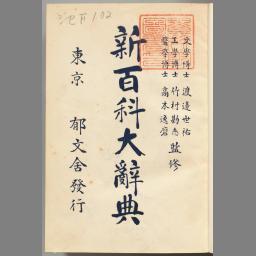 文學博士 渡邊世祐
工學博士 竹村勘忢
醫學博士 高木逸磨
監修
新百科大辭典
東京 郁文舍發行